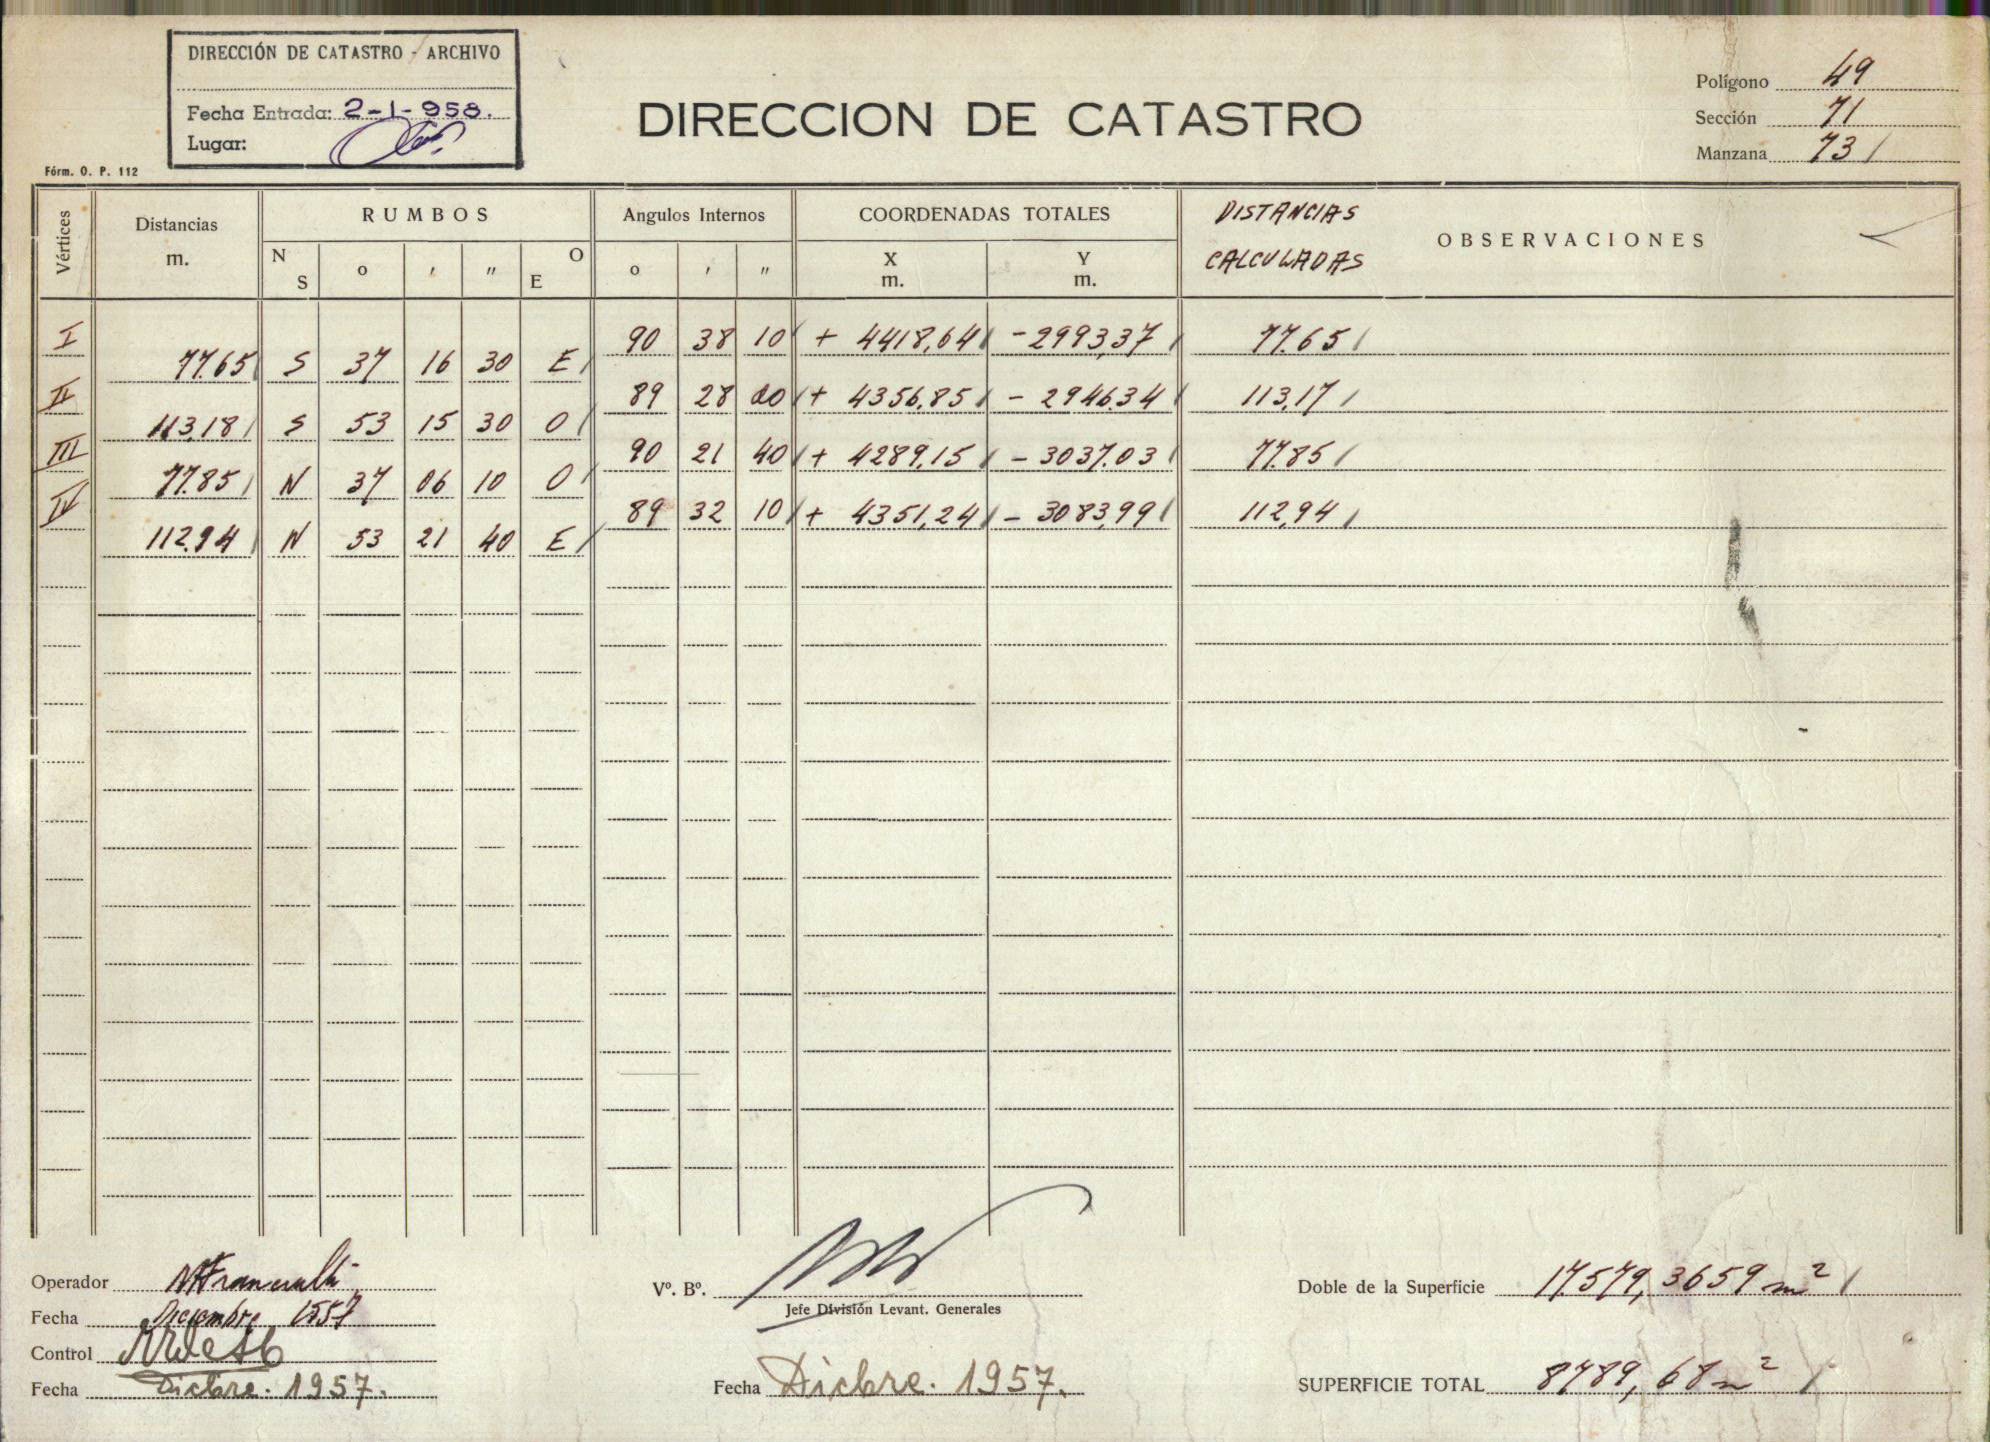 DIRECCIÓN DE CATASTRO - ARCHIVO
Fecha Entrada: 2-1-958.
Lugar:
Fórm. O. P. 112
DIRECCION DE CATASTRO
Polígono 49
Sección 71
Manzana 73
Vértices Distancias m. RUMBOS N S o , " O E Angulos Internos o ' " COORDENADAS TOTALES X m. Y m. DISTANCIAS CALCULADAS OBSERVACIONES
I 90 38 10 + 4418,64 - 2993,37 77.65
77.65 S 37 16 30 E
II 89 28 00 + 4356,85 - 2946.34 113,17
113,18 S 53 15 30 O
III 90 21 40 + 4289,15 - 3037.03 77.85
77.85 N 37 06 10 O
IV 89 32 10 + 4351,24 - 3083,99 112,94
112.94 N 53 21 40 E
Operador
Fecha Diciembre 1957
Control
Fecha Dicbre. 1957.
Vº. Bº.
Jefe División Levant. Generales
Fecha Dicbre. 1957.
Doble de la Superficie 17.579,3659 m²
SUPERFICIE TOTAL 8789,68 m²